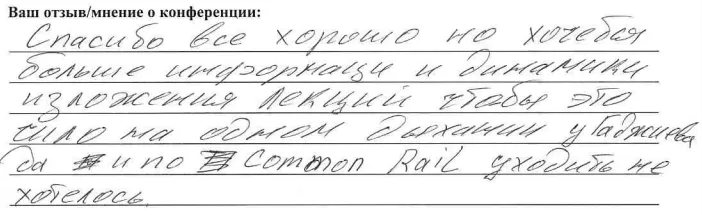 Ваш отзыв/мнение о конференции:
Спасибо все хорошо но хочебся
больше информаци и динамики
изложения лекций чтобы это
было на одном дыхании у Гаджиева
да и по Common Rail уходить не
хотелось.